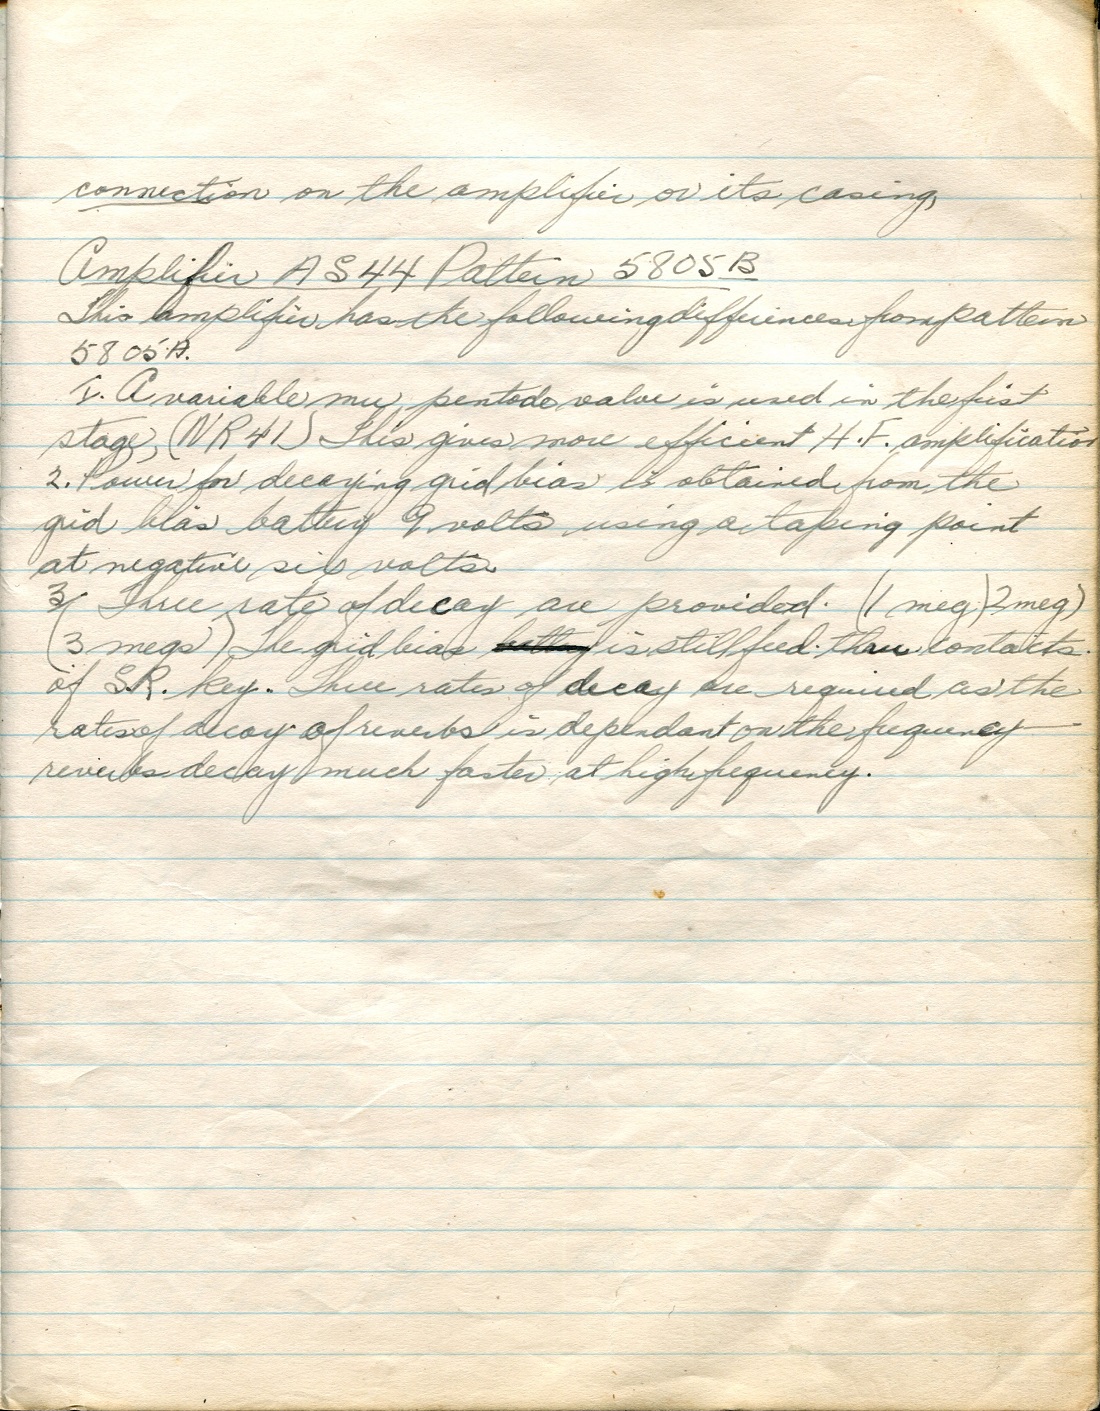 connection on the amplifier or its casing,
Amplifier AS44 Pattern 5805B
This amplifier has the following differences from pattern
5805A.
1. A variable mu pentode valve is used in the first
stage, (NR41) This gives more efficient H.F. amplification
2. Power for decaying grid bias is obtained from the
grid bias battery 9 volts using a taping point
at negative six volts.
3/ Three rate of decay are provided. (1 meg) 2 meg)
(3 megs) The grid bias battery is still feed thru contacts.
of S.R. key. Three rates of decay are required as the
rates of decay of reverbs is dependant on the frequency
reverbs decay much faster at high frequency.